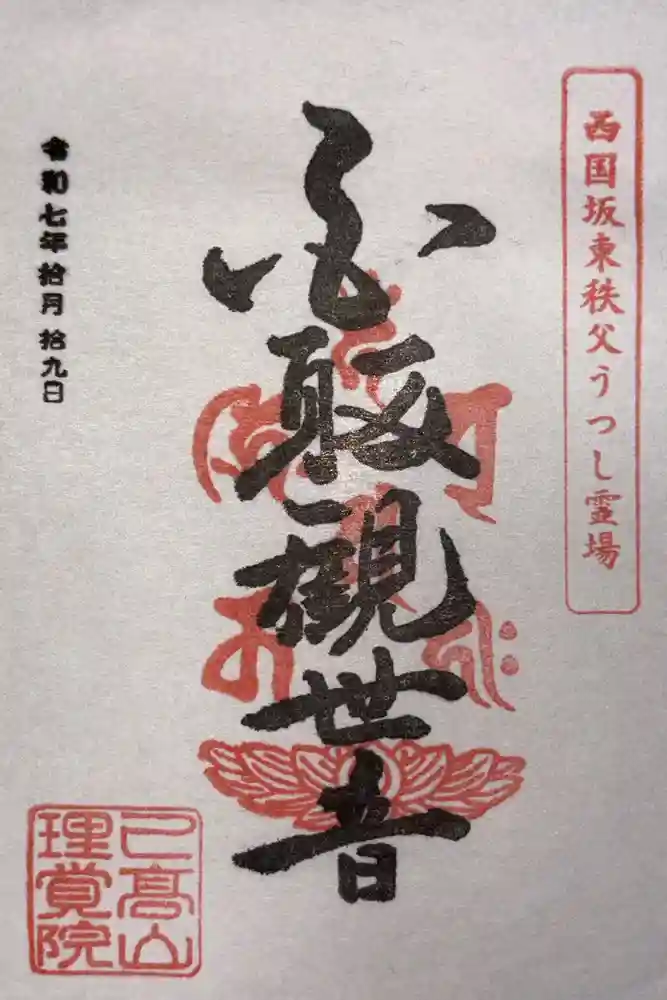 西国坂東秩父うつし霊場
取観世音
令和七年拾月拾九日
己高山
理覚院